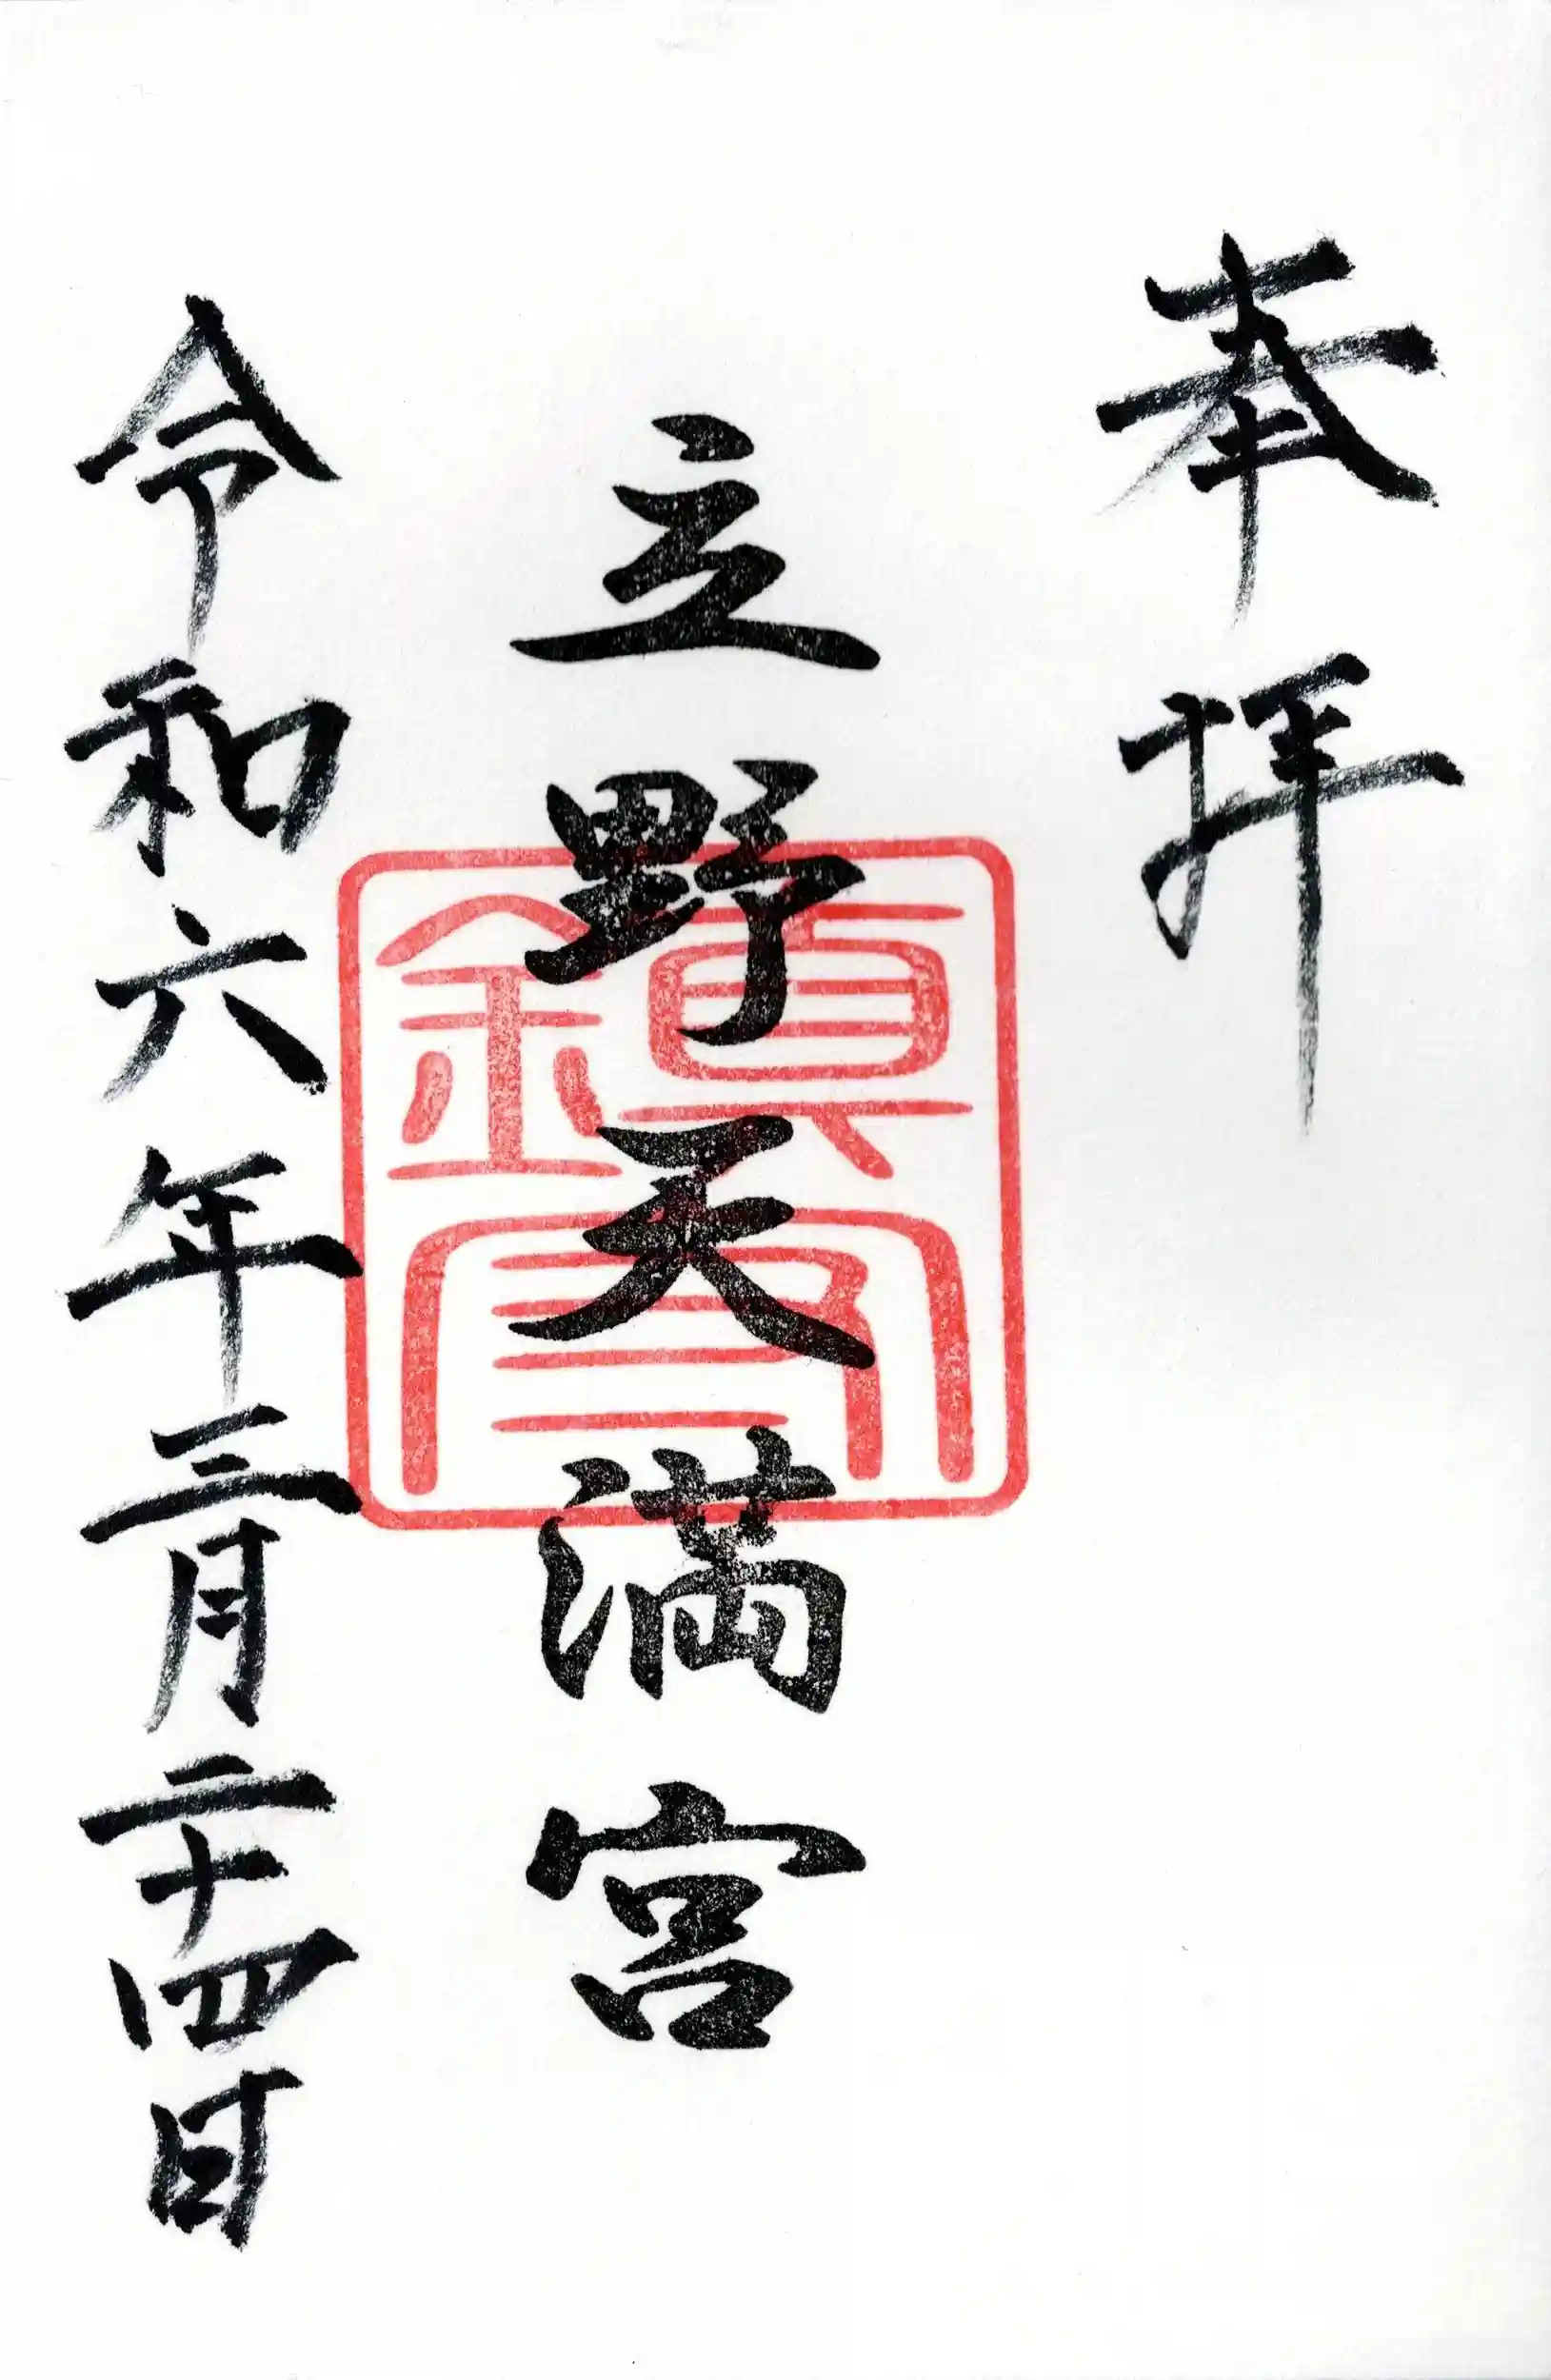 奉拝
立野天満宮
鎭守
令和六年三月二十四日